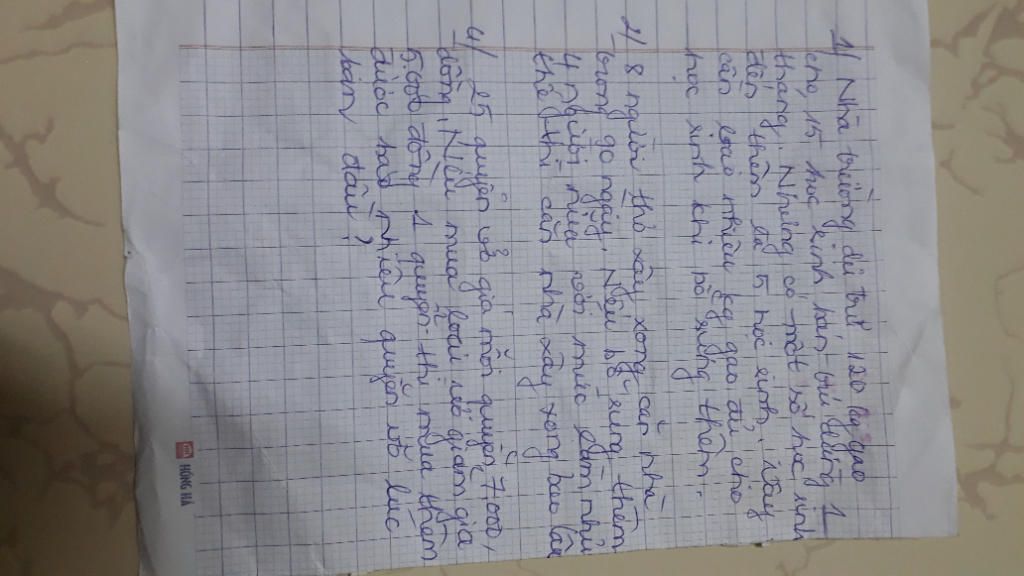 1/ Nhà trường dự trữ 120 kg gạo
cho 15 học sinh bán trú trong 1
tháng. Nhưng có một số học sinh
đến thêm là 5 học sinh. Vậy
cần bao nhiêu kg gạo đủ cho
học sinh khi bổ sung thêm.
2/ 8 người thợ xây xong căn nhà
trong 90 ngày. Nếu bổ sung thêm
4 người nữa với mức làm như
thế thì căn nhà xây xong bao lâu
4/ 25 quyển vở giá mỗi quyển 7.000,
đồng. Nếu mua loại vở giảm giá
5.000 đồng 1 quyển thì mua thêm
được bao nhiêu quyển vở lúc
ban đầu?
HỒNG HÀ